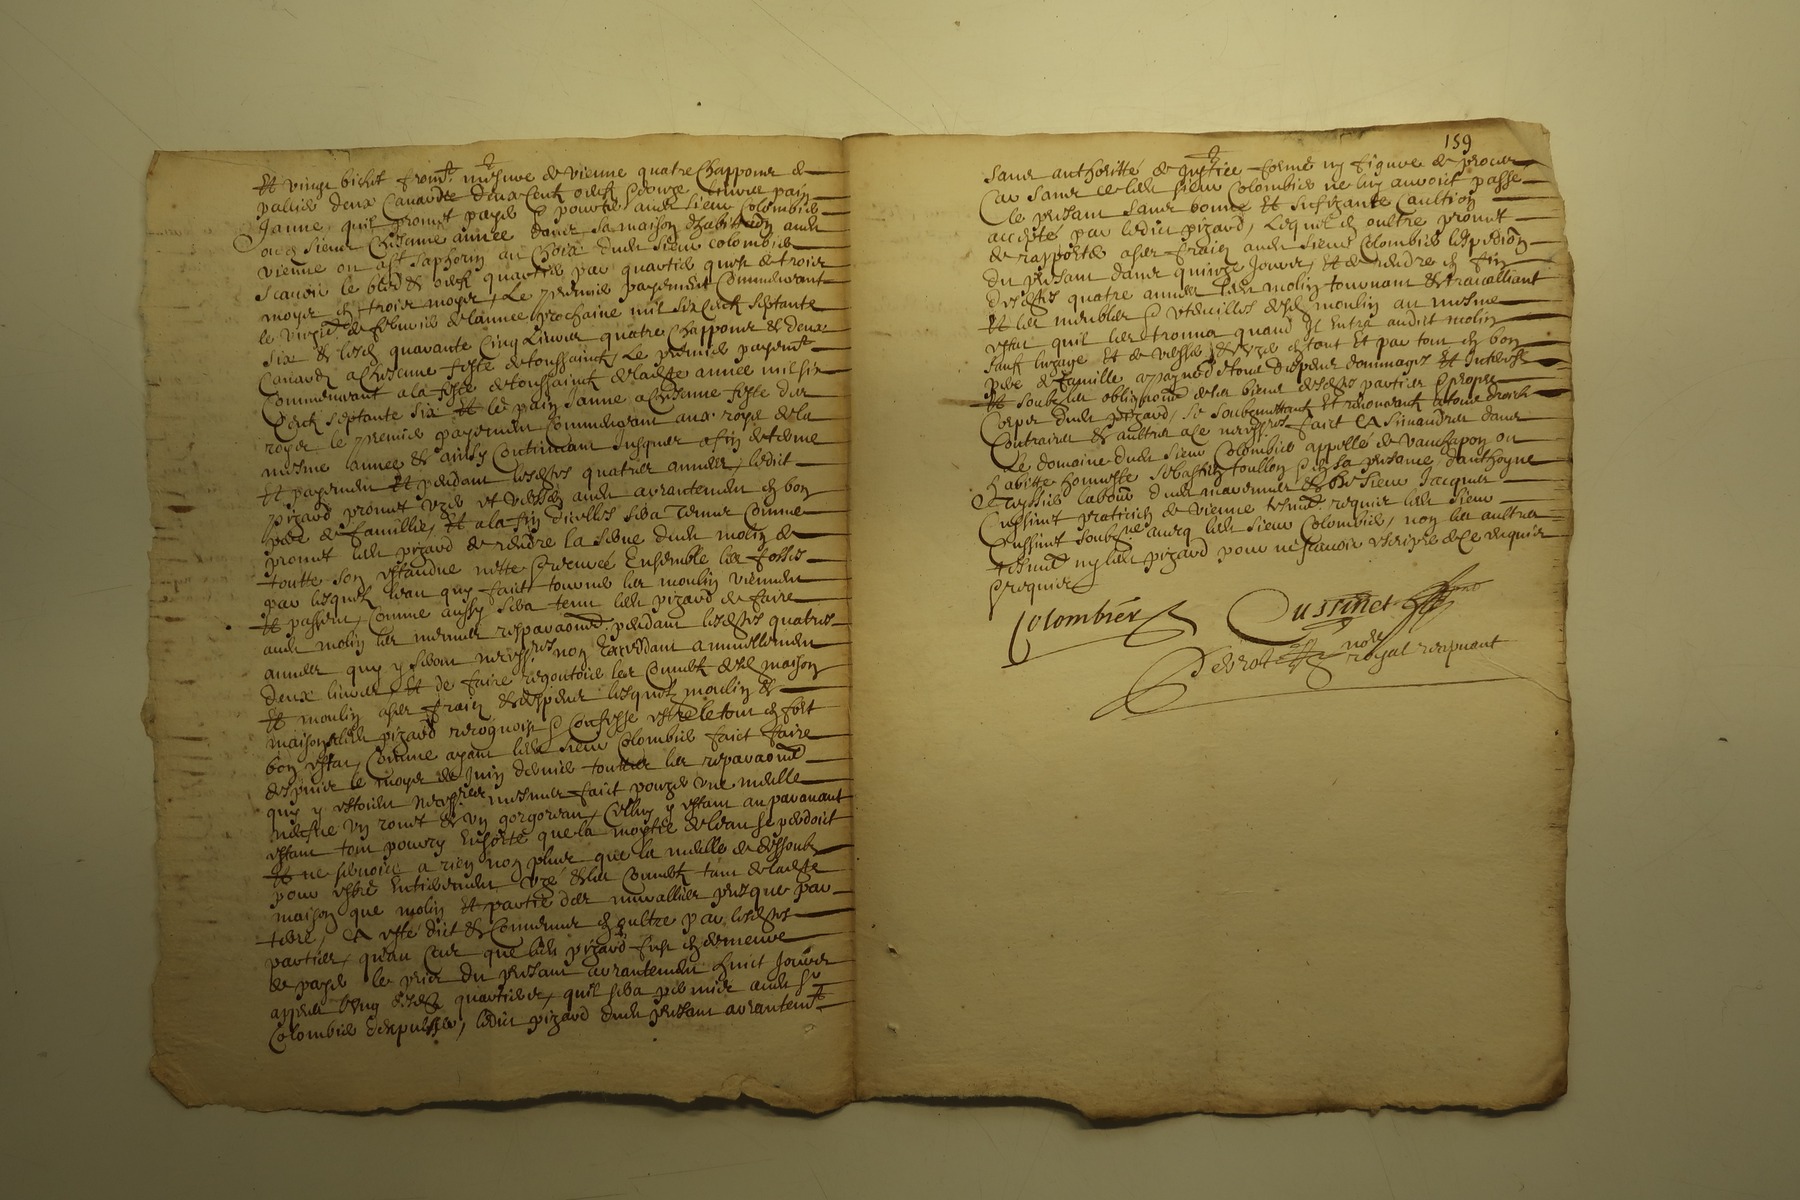 Et vingt bichet from.t mesure de vienne quatre chappons de
pallier deux Canardz deux Cent oeufz & douze livres pain
Janne, quil promet payer & porter audit sieur Colombier
ou es sieur chascune année dans sa maison dhabitaon audit
vienne ou a st saphorin au choix dudit sieur colombier
scavoir le bled & oeufz quartier par quartier quest de trois
moys en trois moys, Le premier payement Commencant
le de febvrier de lannee prochaine mil six Cent septante
six & lesd quarante Cinq Livres quatre chappons & deux
Canardz a chascune feste de toussainct, Le premier payem.t
Commencant a la feste de toussainct de ladte année mil six
Cent septante six Et le pain Janne a chascune feste des
roys le premier payement Commencant aux roys de la
mesme annee & ainsy Continuant jusques a fin de terme
Et payement Et pendant lesdes quatres années, ledict
pizard promet uzer et audit arrantement en bon
pere de famillie, Et a la fin dicelles sera tenu Comme
promet ledit pizard de rendre la dudit molin de
toutte son estandue nette & Ensemble les fosses
par lesquelz leau quy faict tourner les moulin viennent
Et passent, Comme aussy sera tenu ledit pizard de faire
audit molin les menues resparaons pendant lesdes quatres
années quy y seront necess.res non Excedant annuellement
deux livres Et de faire regoutoier les Couvertz desd maison
Et moulin a ses fraiz & despens lesquelz moulin &
maison ledit pizard recognoist & Confesse estre le tout en fort
bon estat, Comme ayant ledit sieur Colombier faict faire
despuis le moys de Juin dernier touttes les reparaons
quy y estoient necess.res mesmes faict pozer une meulle
neufve un rouet & un gorgoreau, Celluy y estant auparavant
estant tout poury Ensorte que la moytié de leau se perdoit
Et ne servoit a rien non plus que la meulle de dessoubz
pour estre Entierement uzé & les Couvertz tant de ladte
maison que molin Et partie des murallies presque par
terre, A esté dict & Convenu en oultre par lesdes
parties, quau Cas que ledit pizard fust en demeure
de payer le prix du present arrantement huict Jours
appres lung desd quartiers, quil sera permis audit sr
Colombier dexpulser, ledict pizard dudit present arrantem.t
159
sans authoritté de Justice forme ny figure de proces
Car sans ce ledit sieur Colombier ne luy auroit passé
le present sans bonne Et sufizante Caultion
accepté par ledict pizard, Lequel en oultre promet
de rapporter a ses fraiz audit sieur Colombier lexpedion
du present dans quinze Jours, Et de rendre en fin
desdes quatre années led molin tournant & travalliant
Et les meubles & uteucilles desd moulin au mesme
estat quil les trouva quand Il Entra audict molin
sauf luzage Et de vesse & uzer en tout Et par tout en bon
pere de famille a payne de tous despens dommages Et Interestz
Et soubz les obligaons de ses biens desdes parties & propre
Corps dudit pizard, se soubzmettant Et renoncant a tous droictz
Contraires & aultres a ce necess.res faict A Simandres dans
Le domaine dudit sieur Colombier appellé de vauchapon ou
habitte honneste sebastien toullon & en sa presence danthoyne
teyssier labour dudit & de sieur Jacques
Cussinet praticien de vienne tesmoins requis ledit sieur
Cussinet soubz.né avecq ledit sieur Colombier, non les aultres
tesmoins ny ledit pizard pour ne scavoir escripre de ce enquis
& requis
Colombier Cussinet
Debrot no.re royal recepvant